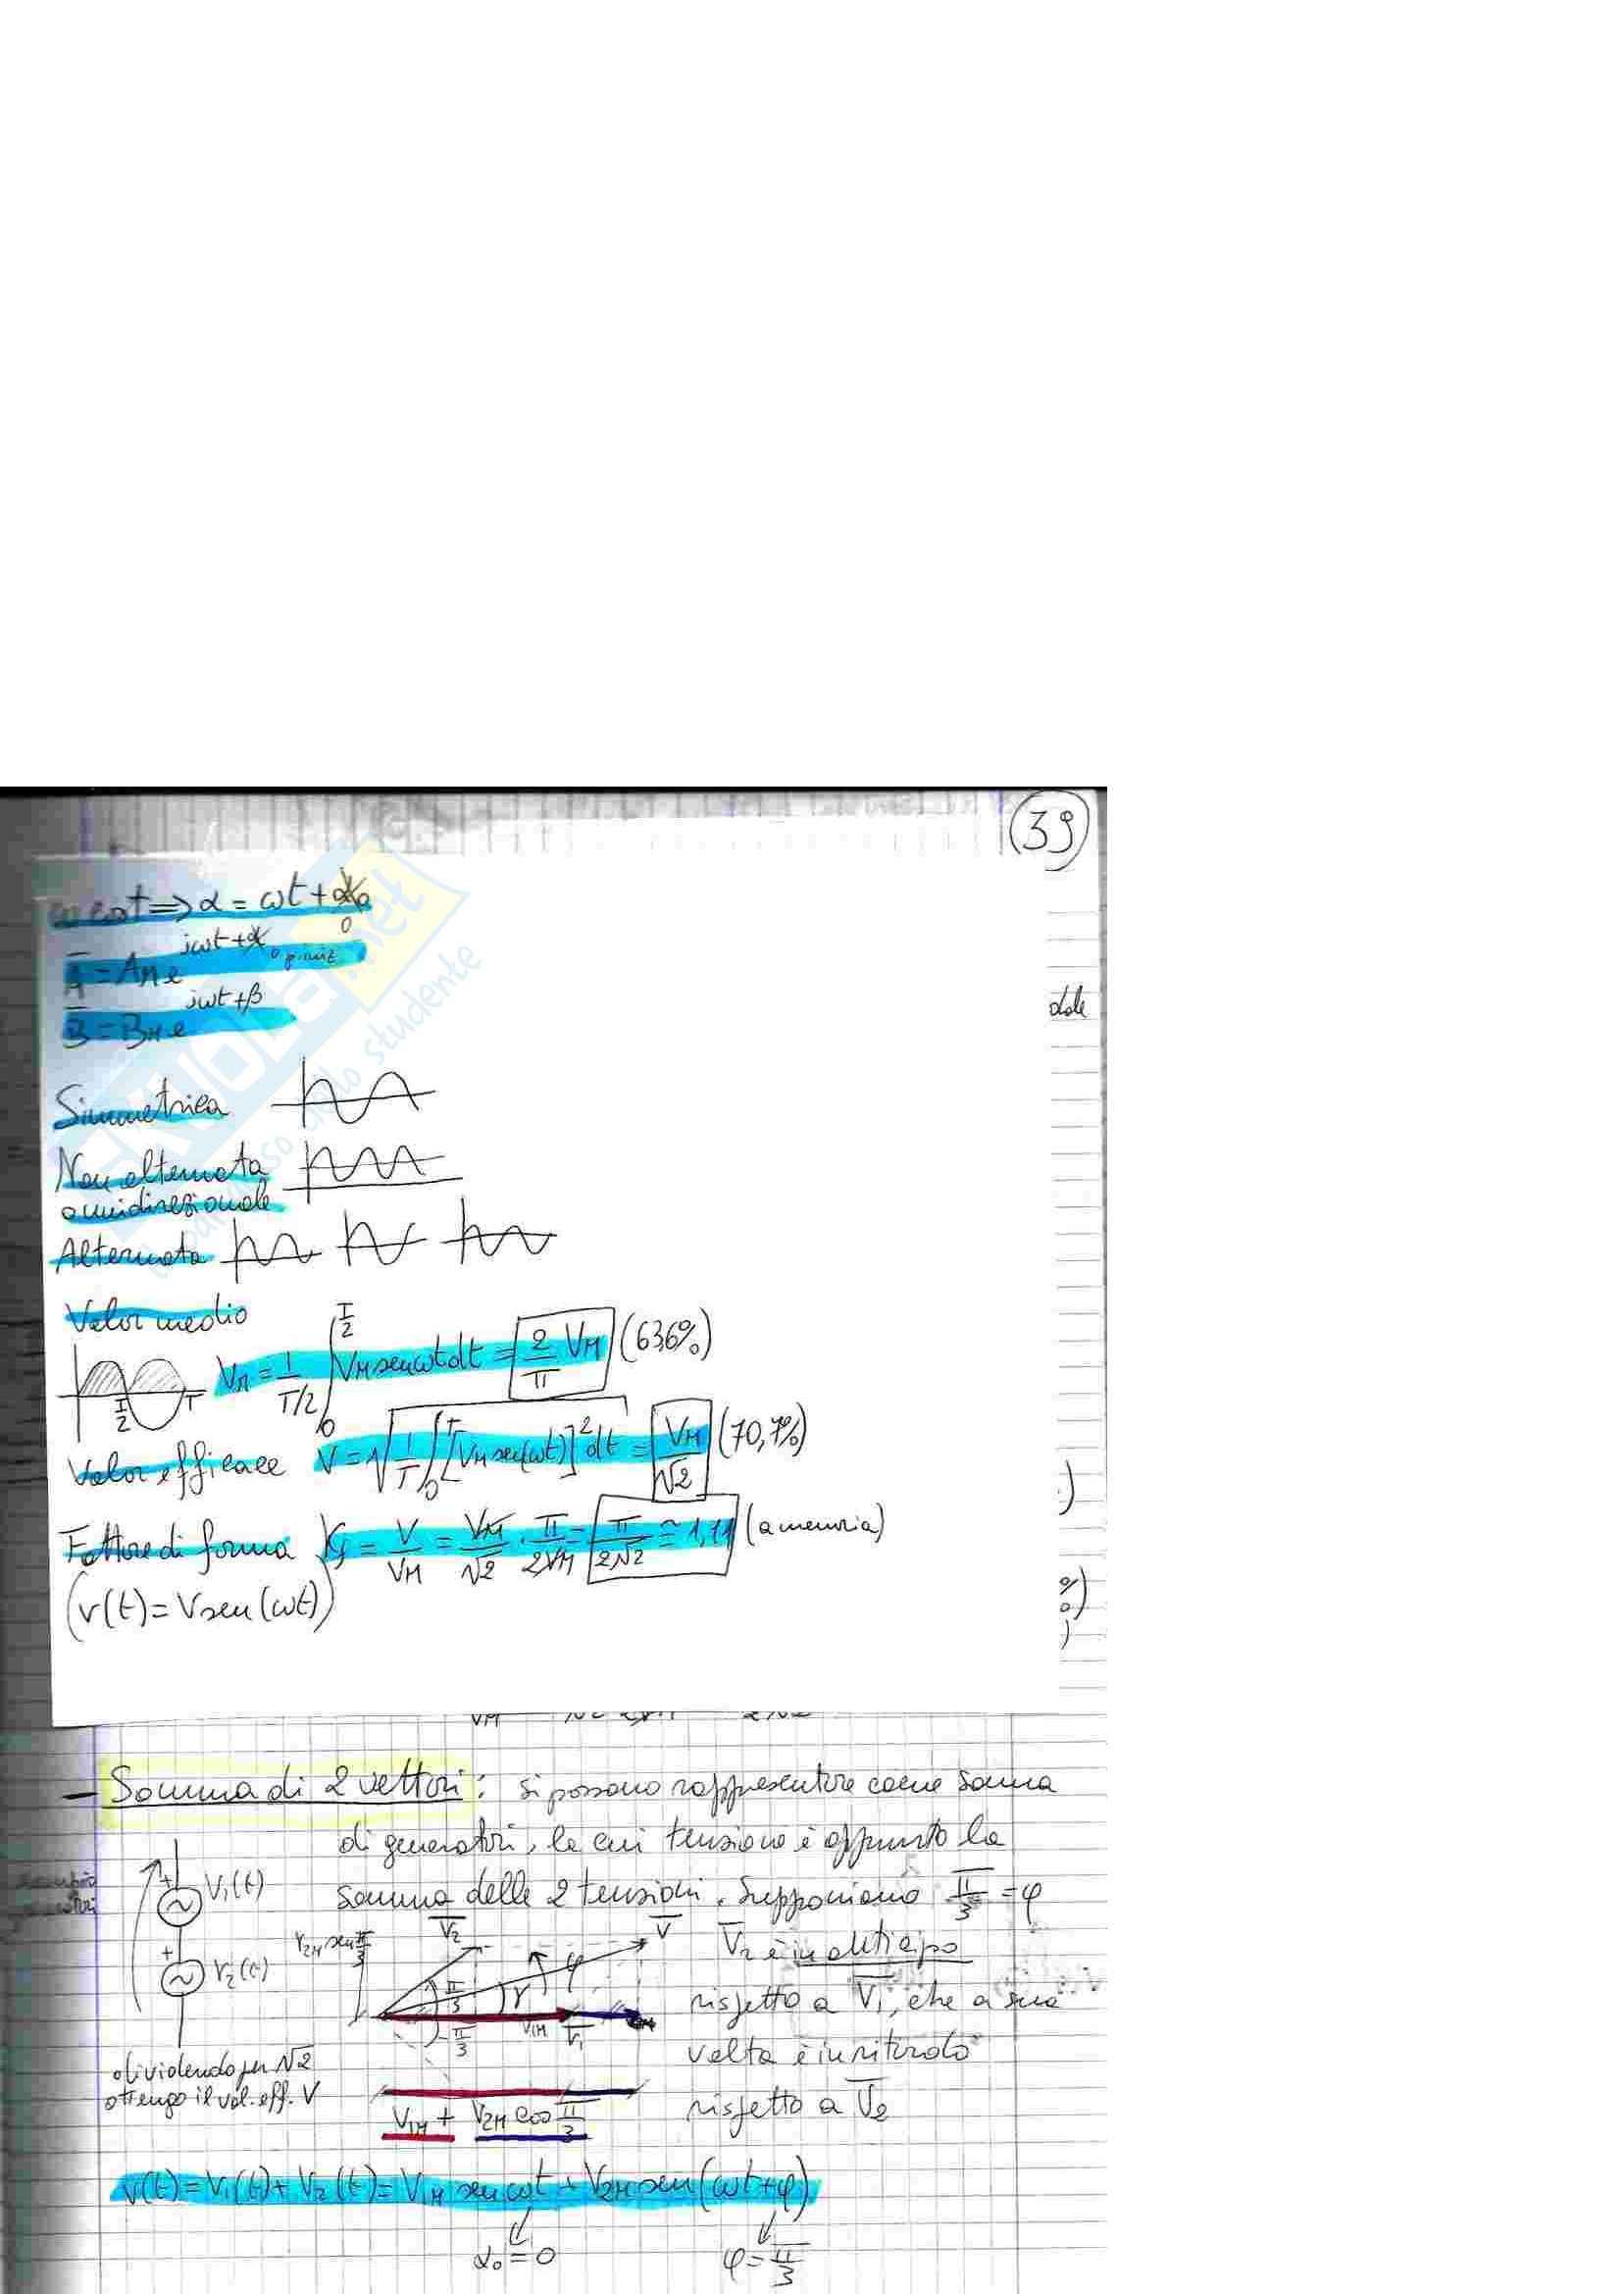 39
ω cost => α = ωt + α₀
0
Ā = A_M e^{jωt + α₀}
B̄ = B_M e^{jωt+β}
dale
Simmetrica
Non alternata
o unidirezionale
Alternata
Valor medio
T/2 T V_M = 1/(T/2) ∫₀^{T/2} V_M sen ωt dt = 2/π V_M (63,6%)
Valor efficace V = √(1/T ∫₀^T [V_M sen(ωt)]² dt) = V_M/√2 (70,7%)
Fattore di forma K_f = V/V_M = V_M/√2 · π/2V_M = π/2√2 ≃ 1,11 (a memoria)
(v(t) = V sen(ωt))
- Somma di 2 vettori: si possono rappresentare come somma
di generatori, la cui tensione è appunto la
somma delle 2 tensioni. Supponiamo π/3 = φ
V₁(t)
V₂(t)
V₂M sen π/3
V̄₂ V̄
π/3 γ φ
-π/3 V₁M V̄₁
V̄₂ è in anticipo
rispetto a V̄₁, che a sua
volta è in ritardo
rispetto a V̄₂
dividendo per √2
ottengo il val. eff. V
V₁M + V₂M cos π/3
V(t) = V₁(t) + V₂(t) = V₁M sen ωt + V₂M sen(ωt+φ)
α₀ = 0 φ = π/3